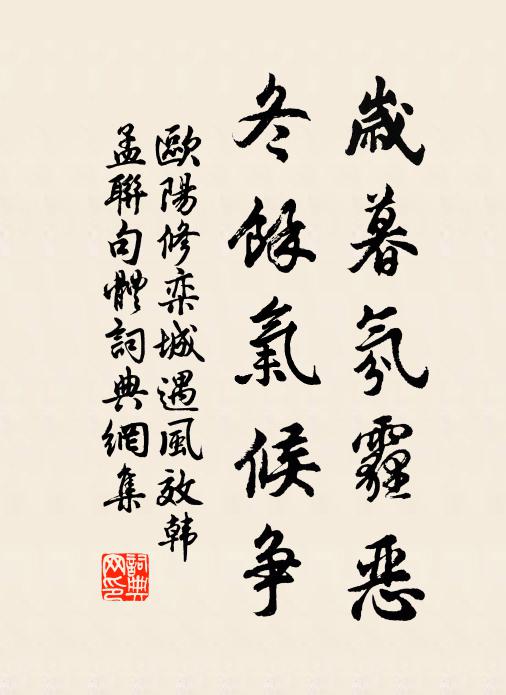 歲暮氛霾惡
冬餘氣候争
歐陽修欒城遇風效韓
孟聯句體詞典網集
詞典网印